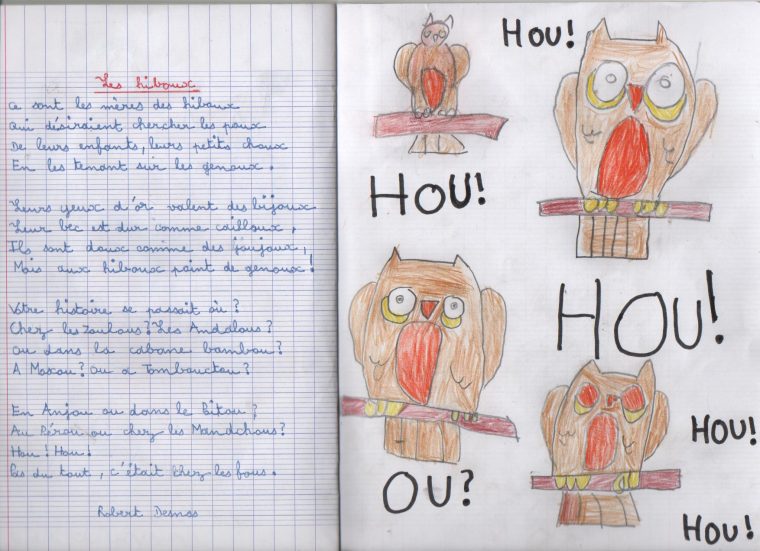 Les hiboux
Ce sont les mères des hiboux
Qui désiraient chercher les poux
De leurs enfants, leurs petits choux
En les tenant sur les genoux.
Leurs yeux d'or valent des bijoux
Leur bec est dur comme cailloux,
Ils sont doux comme des joujoux,
Mais aux hiboux point de genoux!
Votre histoire se passait où?
Chez les Zoulous? Les Andalous?
Ou dans la cabane bambou?
A Moscou? Ou a Tombouctou?
En Anjou ou dans le Pitou?
Au Pérou ou chez les Mandchous?
Hou! Hou!
Pas du tout, c'était chez les fous.
Robert Desnos
HOU!
HOU!
HOU!
OU?
HOU!
HOU!